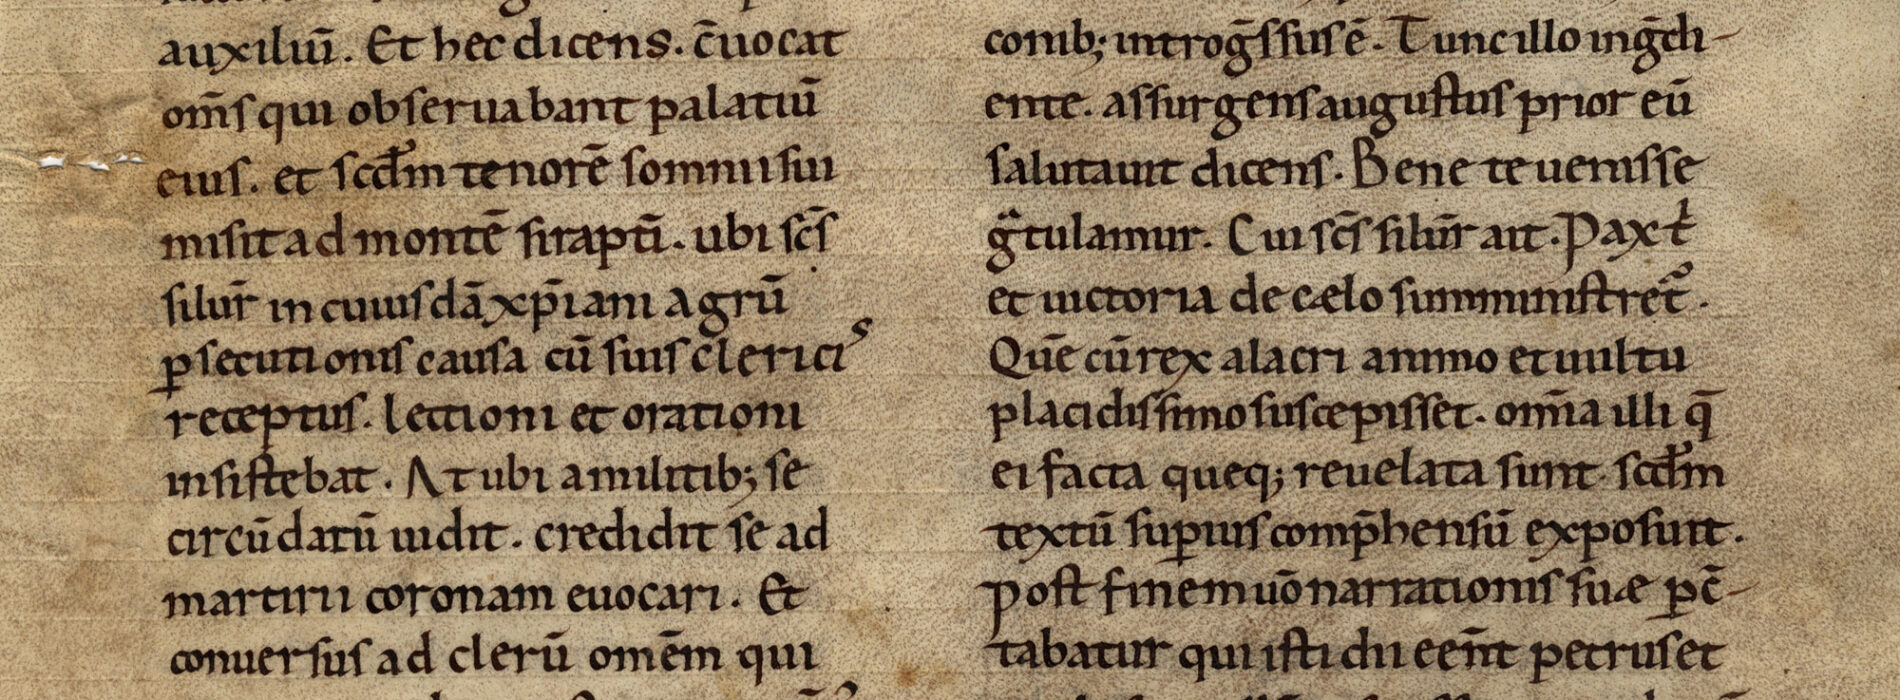 auxiliū. Et hec dicens. c̄uocat
om̄s qui obseruabant palatiū
eius. et scd̄m tenorē somnii sui
misit ad montē sirapti̅. ubi sc̄s
silur̄ in cuiusdā xp̄iani agrū
ꝑsecutionis causa cū suis clericis
receptus. lectioni et orationi
insistebat. At ubi a militib; se
circūdatū uidit. credidit se ad
martirii coronam euocari. Et
conuersus ad clerū omēm qui
comib; introḡssus ē. Tunc illo inḡdi-
ente. assurgens augustus prior eū
salutauit dicens. Bene te uenisse
gᷓtulamur. Cui sc̄s silur̄ ait. Pax t̄
et uictoria de cælo sumministretᷣ.
Quē cū rex alacri animo et uultu
placidissimo suscepisset. om̄ia illi q̄
ei facta queq; reuelata sunt. scd̄m
textū suꝑius comp̄hensū exposuit.
post finem uō narrationis suæ ꝑc̄-
tabatur qui isti dii eēn̄t petrus et